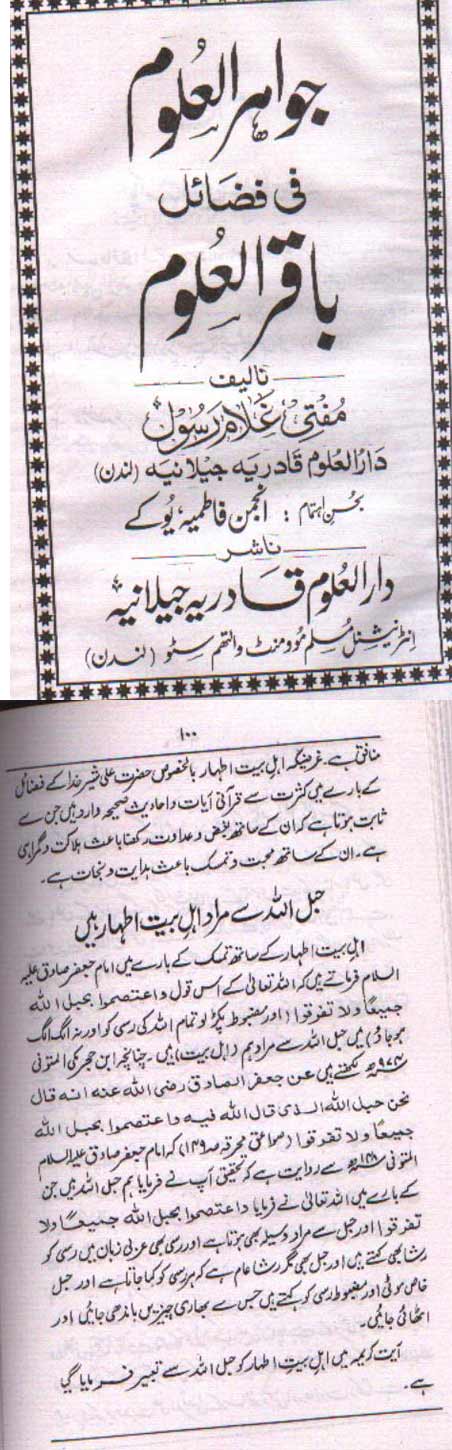 جواہر العلوم
فی فضائل
باقر العلوم
تالیف
مفتی غلام رسول
دارالعلوم قادریہ جیلانیہ (لندن)
بحسن اہتمام : انجمن فاطمیہ یوکے
ناشر
دارالعلوم قادریہ جیلانیہ
انٹرنیشنل مسلم موومنٹ والتھم سٹو (لندن)
۱۰۰
منافق ہے۔ غرضیکہ اہل بیت اطہار بالخصوص حضرت علی شیر خدا کے فضائل
کے بارے میں کثرت سے قرآنی آیات و احادیث صحیحہ وارد ہیں جن سے
ثابت ہوتا ہے کہ ان کے ساتھ بغض و عداوت رکھنا باعث ہلاکت و گمراہی
ہے۔ ان کے ساتھ محبت و تمسک باعث ہدایت و نجات ہے۔
حبل اللہ سے مراد اہل بیت اطہار ہیں
اہل بیت اطہار کے ساتھ تمسک کے بارے میں امام جعفر صادق علیہ
السلام فرماتے ہیں کہ اللہ تعالیٰ کے اس قول واعتصموا بحبل اللہ
جمیعًا ولا تفرقوا (اور مضبوط پکڑ لو تمام اللہ کی رسی کو اور نہ الگ الگ
ہو جاؤ) میں حبل اللہ سے مراد ہم (اہل بیت) ہیں۔ چنانچہ ابن حجر مکی المتوفی
۹۷۴ھ لکھتے ہیں عن جعفر الصادق رضی اللہ عنہ انہ قال
نحن حبل اللہ الذی قال اللہ فیہ واعتصموا بحبل اللہ
جمیعًا ولا تفرقوا (صواعق محرقہ صـ۱۴۹) کہ امام جعفر صادق علیہ السلام
المتوفی ۱۴۸ھ سے روایت ہے کہ تحقیق آپ نے فرمایا ہم حبل اللہ ہیں جن
کے بارے میں اللہ تعالیٰ نے فرمایا واعتصموا بحبل اللہ جمیعًا ولا
تفرقوا اور حبل سے مراد وسیلہ بھی ہوتا ہے اور رسی بھی عربی زبان میں رسی کو
رشا بھی کہتے ہیں اور حبل بھی مگر رشا عام ہے کہ ہر رسی کو کہا جاتا ہے اور حبل
خاص موٹی اور مضبوط رسی کو کہتے ہیں جس سے بھاری چیزیں باندھی جائیں اور
اٹھائی جائیں۔
آیت کریمہ میں اہل بیت اطہار کو حبل اللہ سے تعبیر فرمایا گیا
ہے۔